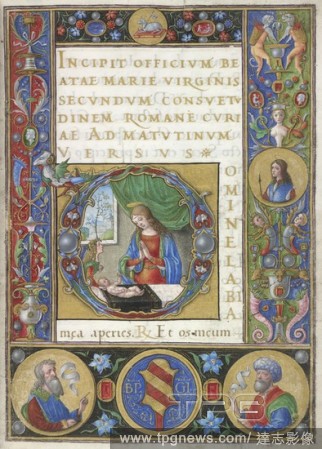 INCIPIT OFFICIUM BE
ATAE MARIE VIRGINIS
SECUNDUM CONSVETU
DINEM ROMANE CURI
AE AD MATUTINUM
VERSUS
OMINE LABIA
mea aperies. R. Et os meum
BP GI
TPG
www.tpgnews.com / 達志影像